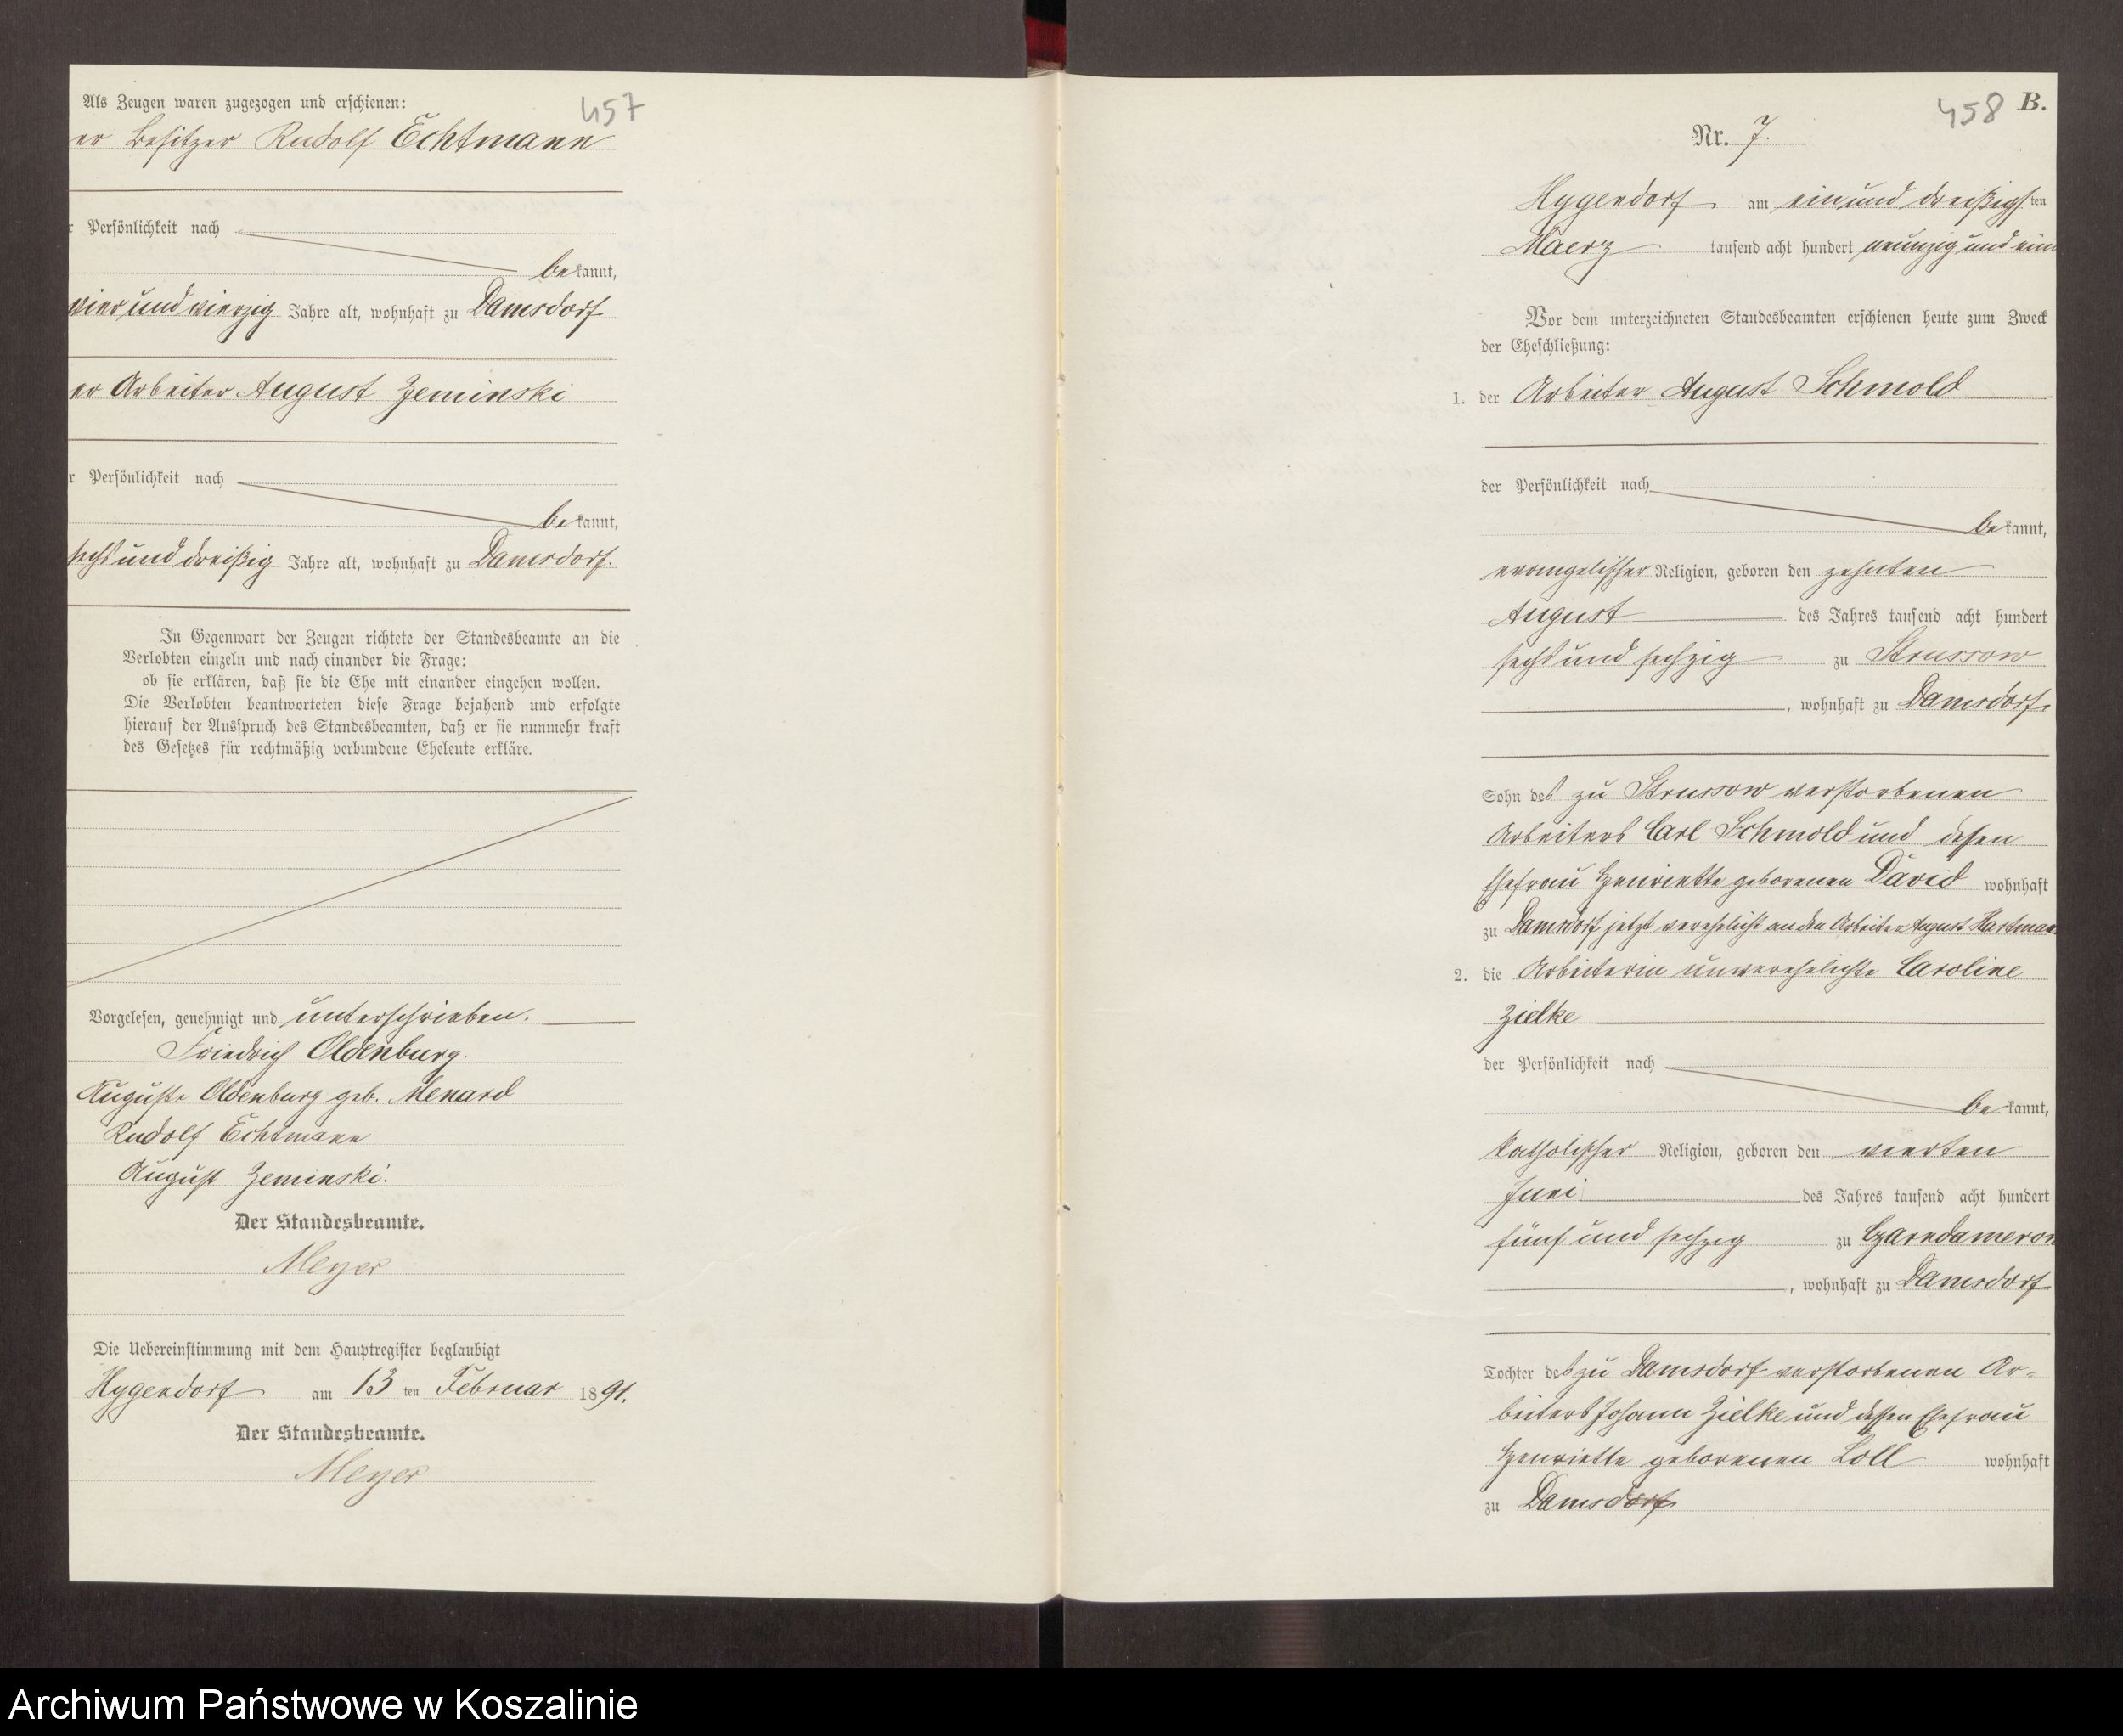 457
Als Zeugen waren zugezogen und erschienen:
er Besitzer Rudolf Echtmann
r Persönlichkeit nach
bekannt,
vier und vierzig Jahre alt, wohnhaft zu Damsdorf
er Arbeiter August Zeminski
r Persönlichkeit nach
bekannt,
sechs und dreißig Jahre alt, wohnhaft zu Damsdorf.
In Gegenwart der Zeugen richtete der Standesbeamte an die
Verlobten einzeln und nach einander die Frage:
ob sie erklären, daß sie die Ehe mit einander eingehen wollen.
Die Verlobten beantworteten diese Frage bejahend und erfolgte
hierauf der Ausspruch des Standesbeamten, daß er sie nunmehr kraft
des Gesetzes für rechtmäßig verbundene Eheleute erkläre.
Vorgelesen, genehmigt und unterschrieben.
Friedrich Oldenburg.
Auguste Oldenburg geb. Menard
Rudolf Echtmann
August Zeminski.
Der Standesbeamte.
Meyer
Die Uebereinstimmung mit dem Hauptregister beglaubigt
Hygendorf am 13 ten Februar 1891.
Der Standesbeamte.
Meyer
458 B.
Nr. 7.
Hygendorf am ein und dreißigsten
Maerz tausend acht hundert neunzig und ein
Vor dem unterzeichneten Standesbeamten erschienen heute zum Zweck
der Eheschließung:
1. der Arbeiter August Schmold
der Persönlichkeit nach
bekannt,
evangelischer Religion, geboren den zehnten
August des Jahres tausend acht hundert
sechs und sechzig zu Strussow
, wohnhaft zu Damsdorf
Sohn des zu Strussow verstorbenen
Arbeiters Carl Schmold und dessen
Ehefrau Henriette geborenen David wohnhaft
zu Damsdorf jetzt verehelicht an den Arbeiter August Hartman
2. die Arbeiterin unverehelichte Caroline
Zielke
der Persönlichkeit nach
bekannt,
katholischer Religion, geboren den vierten
Juni des Jahres tausend acht hundert
fünf und sechzig zu Czarndamerow
, wohnhaft zu Damsdorf
Tochter des zu Damsdorf verstorbenen Ar-
beiters Johann Zielke und dessen Ehefrau
Henriette geborenen Loll wohnhaft
zu Damsdorf
Archiwum Państwowe w Koszalinie